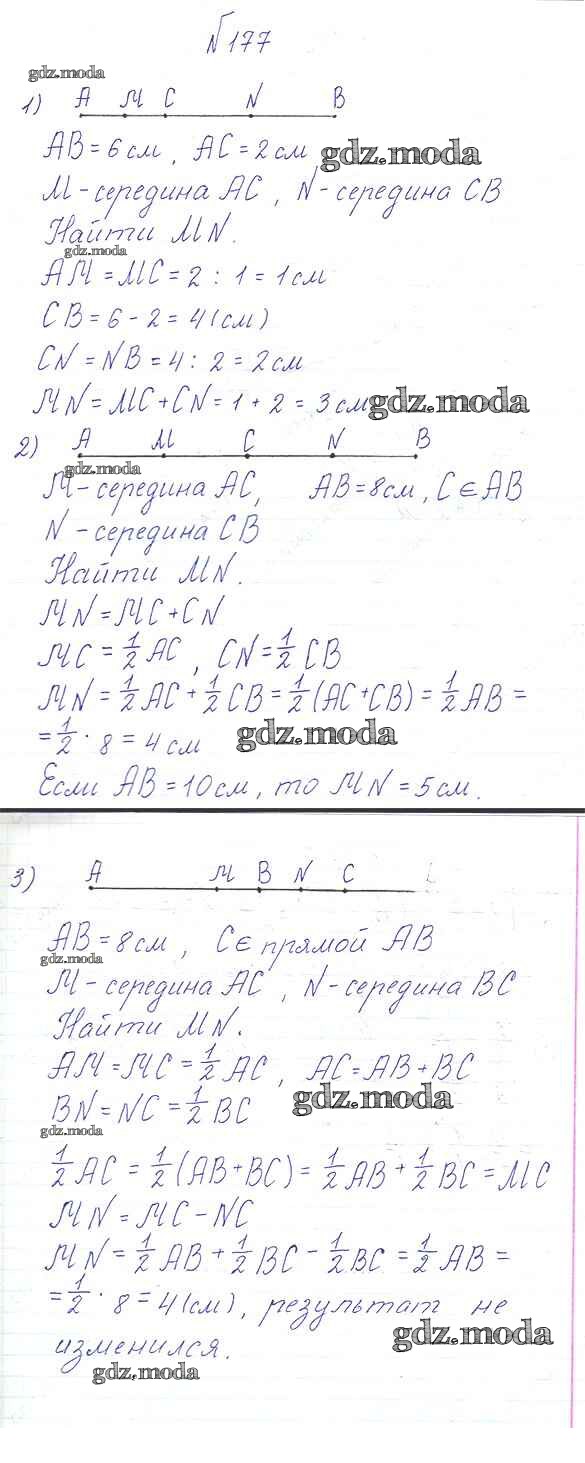 №177
gdz.moda
1) A M C N B
AB = 6 см, AC = 2 см gdz.moda
M - середина AC, N - середина CB
Найти MN.
gdz.moda
AM = MC = 2 : 1 = 1 см
CB = 6 - 2 = 4 (см)
CN = NB = 4 : 2 = 2 см
MN = MC + CN = 1 + 2 = 3 см gdz.moda
2) A M C N B
gdz.moda
M - середина AC, AB = 8 см, C ∈ AB
N - середина CB
Найти MN.
MN = MC + CN
MC = 1/2 AC, CN = 1/2 CB
MN = 1/2 AC + 1/2 CB = 1/2 (AC + CB) = 1/2 AB =
= 1/2 · 8 = 4 см gdz.moda
Если AB = 10 см, то MN = 5 см.
3) A M B N C
AB = 8 см, C ∈ прямой AB
gdz.moda
M - середина AC, N - середина BC
Найти MN.
AM = MC = 1/2 AC, AC = AB + BC
BN = NC = 1/2 BC gdz.moda
gdz.moda
1/2 AC = 1/2 (AB + BC) = 1/2 AB + 1/2 BC = MC
MN = MC - NC
MN = 1/2 AB + 1/2 BC - 1/2 BC = 1/2 AB =
= 1/2 · 8 = 4 (см), результат не
изменился. gdz.moda
gdz.moda